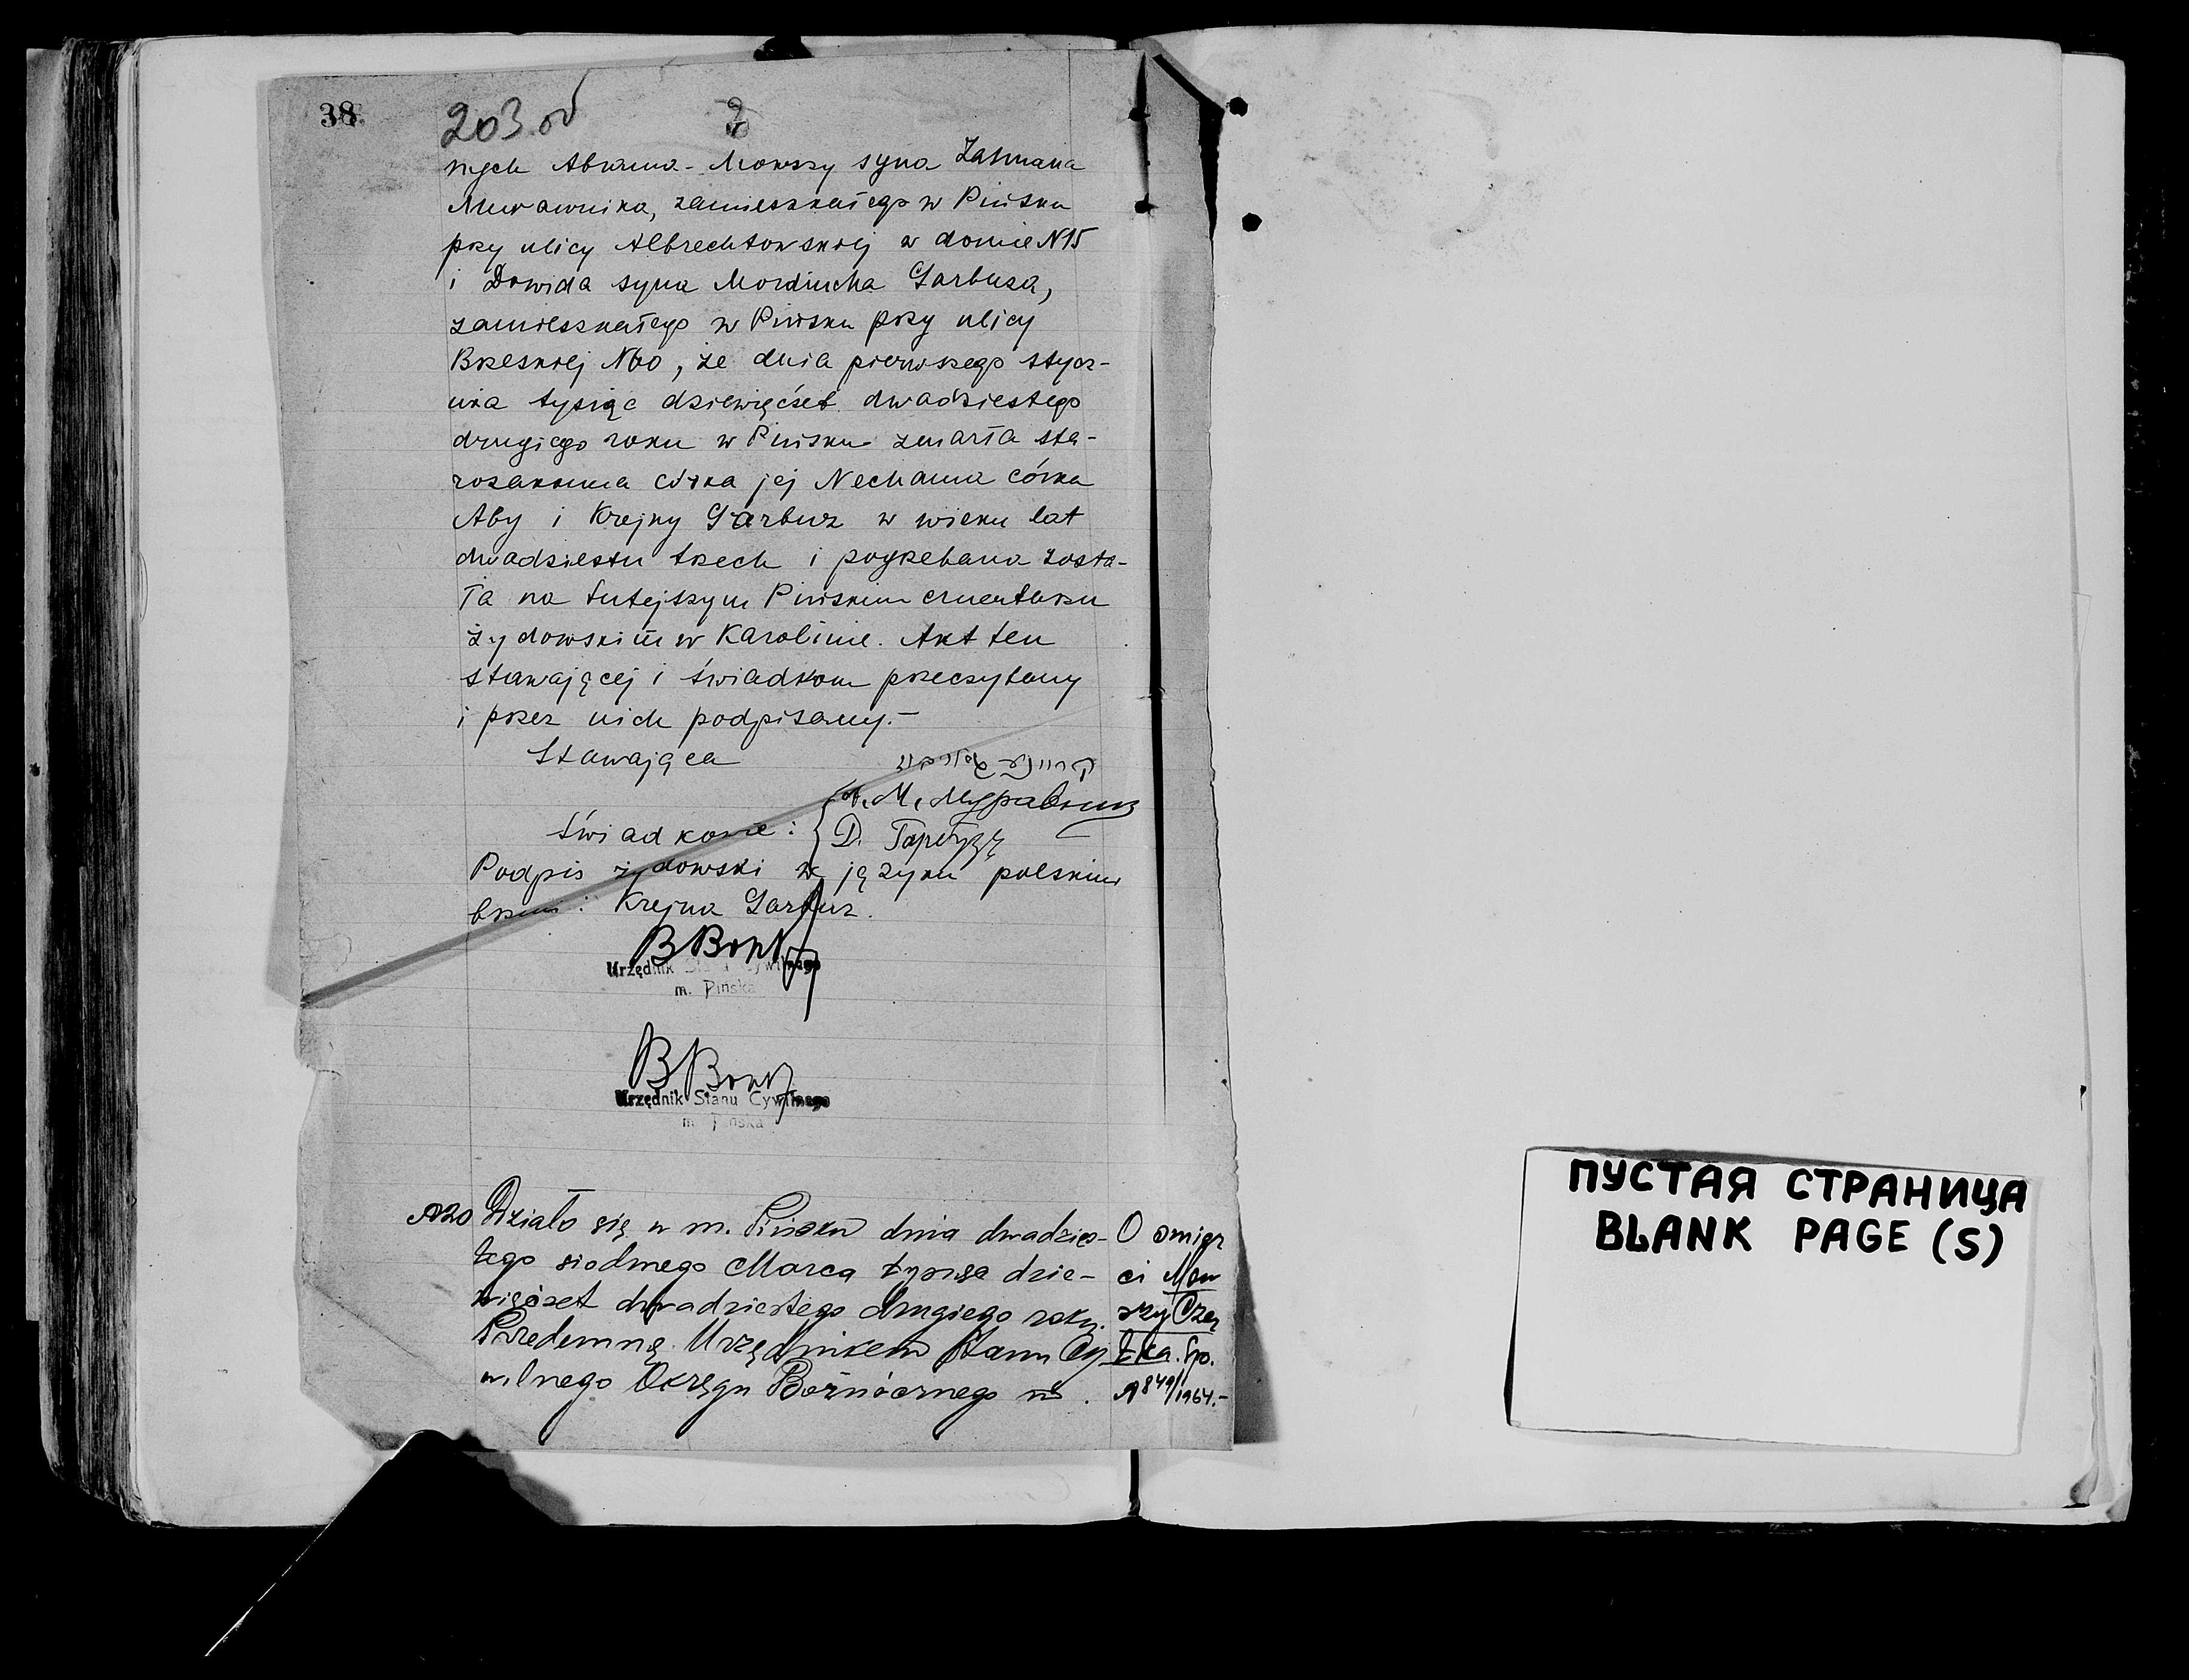 38
203 об
nych Abrama-Mowszy syna Załmana
Murawnika, zamieszkałego w Pińsku
przy ulicy Albrechtowskiej w domie N15
i Dowida syna Morducha Garbuza,
zamieszkałego w Pińsku przy ulicy
Brzeskiej N60, że dnia pierwszego stycz-
nia tysiąc dziewięćset dwadziestego
drugiego roku w Pińsku zmarła sta-
rozakonna córka jej Nechama córka
Aby i Krejny Garbuz w wieku lat
dwadziestu trzech i pogrzebana zosta-
ła na tutejszym Pińskim cmentarzu
żydowskim w Karolinie. Akt ten
stawającej i świadkom przeczytany
i przez nich podpisany.-
Stawająca
А. М. Муравник
Świadkowie: { D. Гарбузъ
Podpis żydowski w języku polskim
brzmi: Krejna Garbuz.
Urzędnik Stanu Cywilnego
m. Pińska
Urzędnik Stanu Cywilnego
m. Pińska
N20 Działo się w m. Pińsku dnia dwadzies-
tego siodmego Marca tysiąc dzie-
więćset dwadziestego drugiego roku.
Przedemną Urzędnikem Stanu Cy
wilnego Okręgu Bożnicznego m.
O śmier
ci Mow
szy Czer
ka. Sp.
N 849/1964.-
ПУСТАЯ СТРАНИЦА
BLANK PAGE (S)